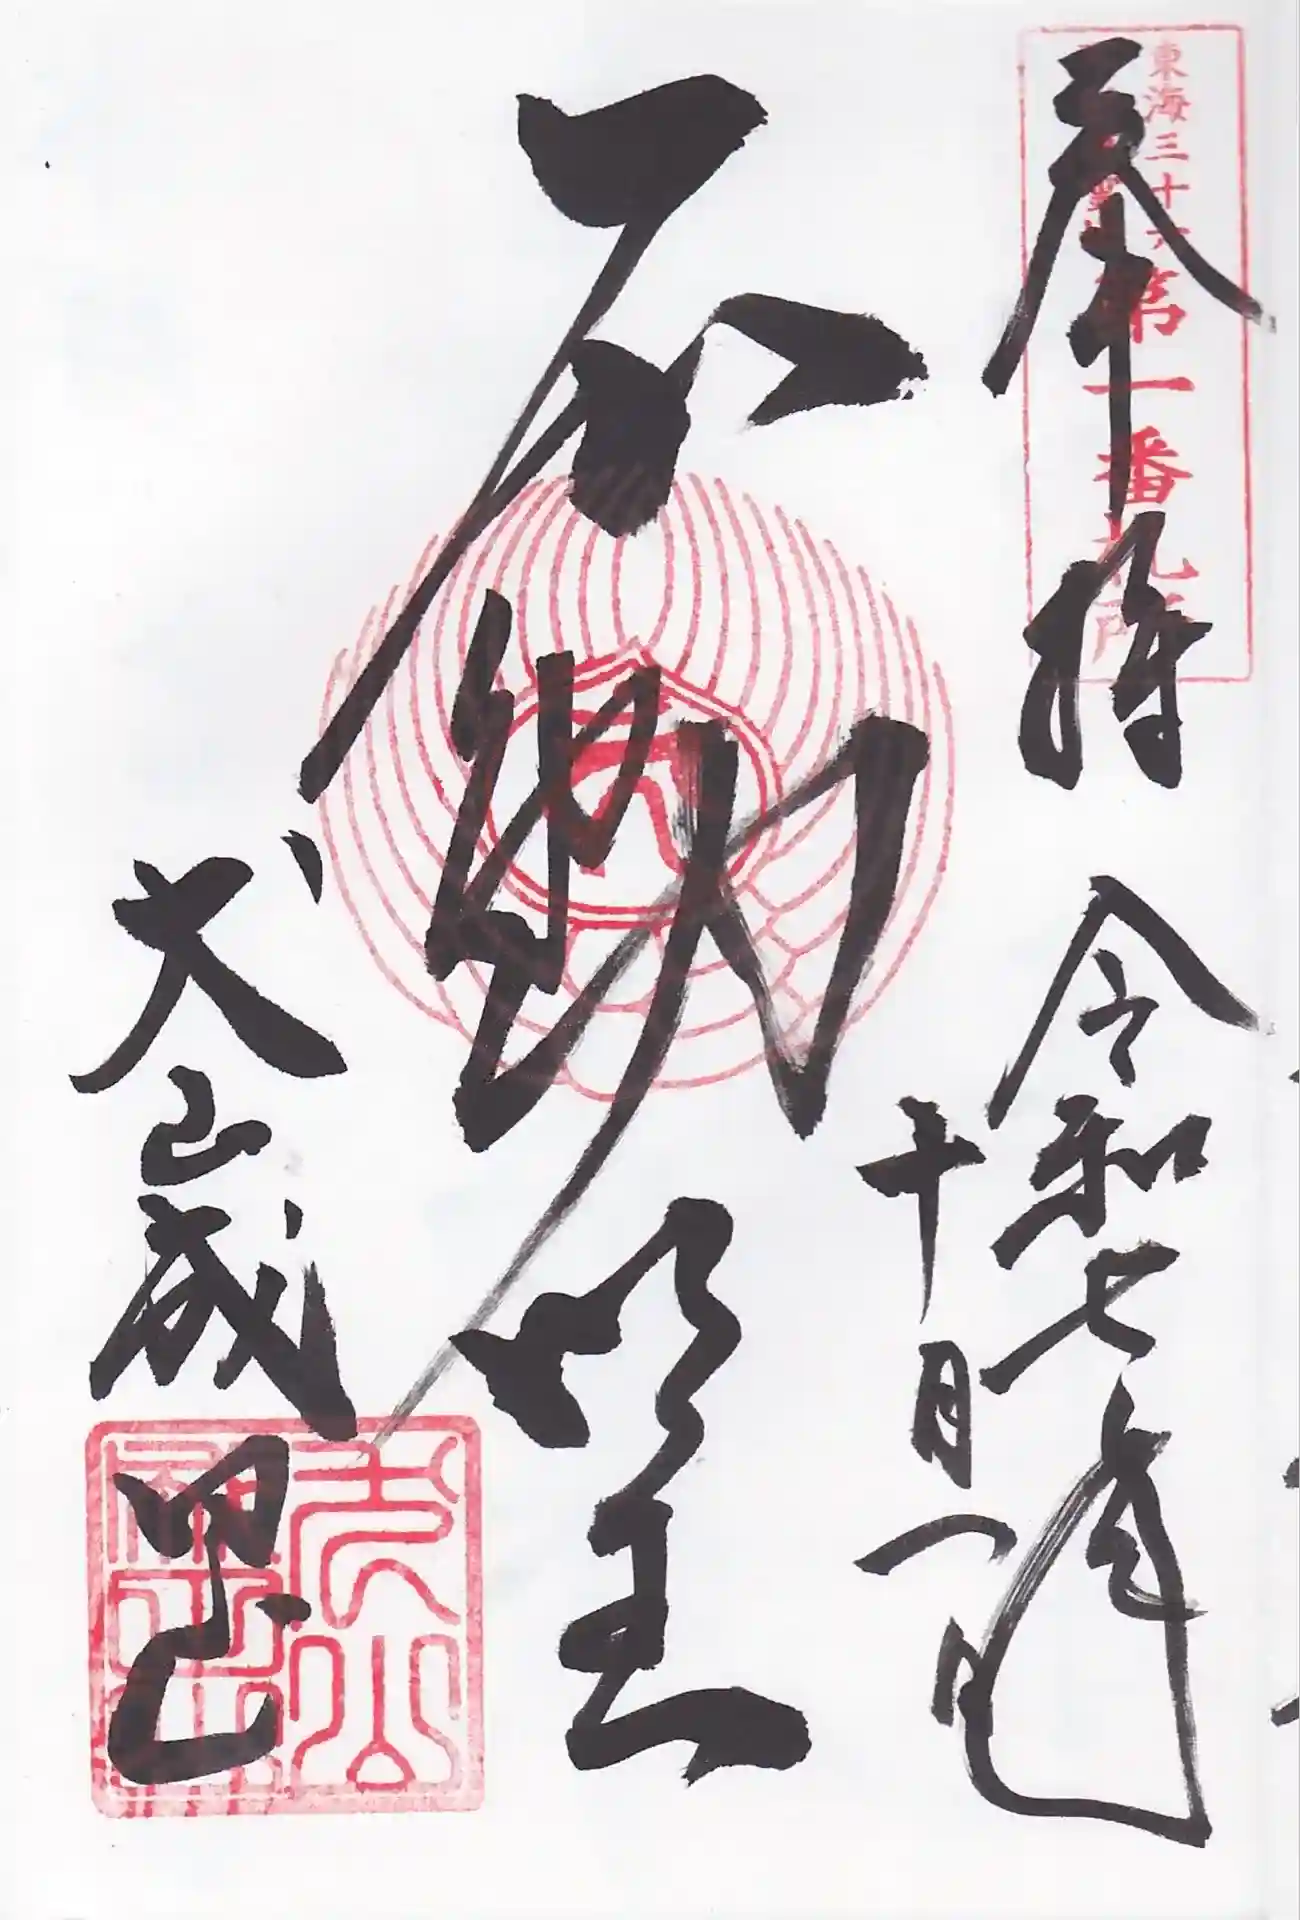 奉拝
令和七年
十月一日
東海三十六
第一番札所
不動明王
犬山成田山